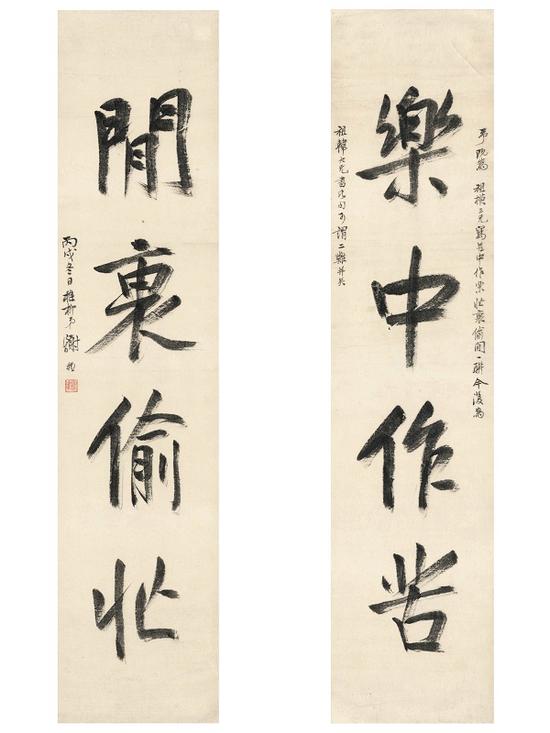 弟既為 祖模二兄寫苦中作樂忙裏偷閒一聯今復為
樂中作苦
祖韓大兄書此句可謂二難并矣
閒裏偷忙
丙戌冬日稚柳弟謝稚